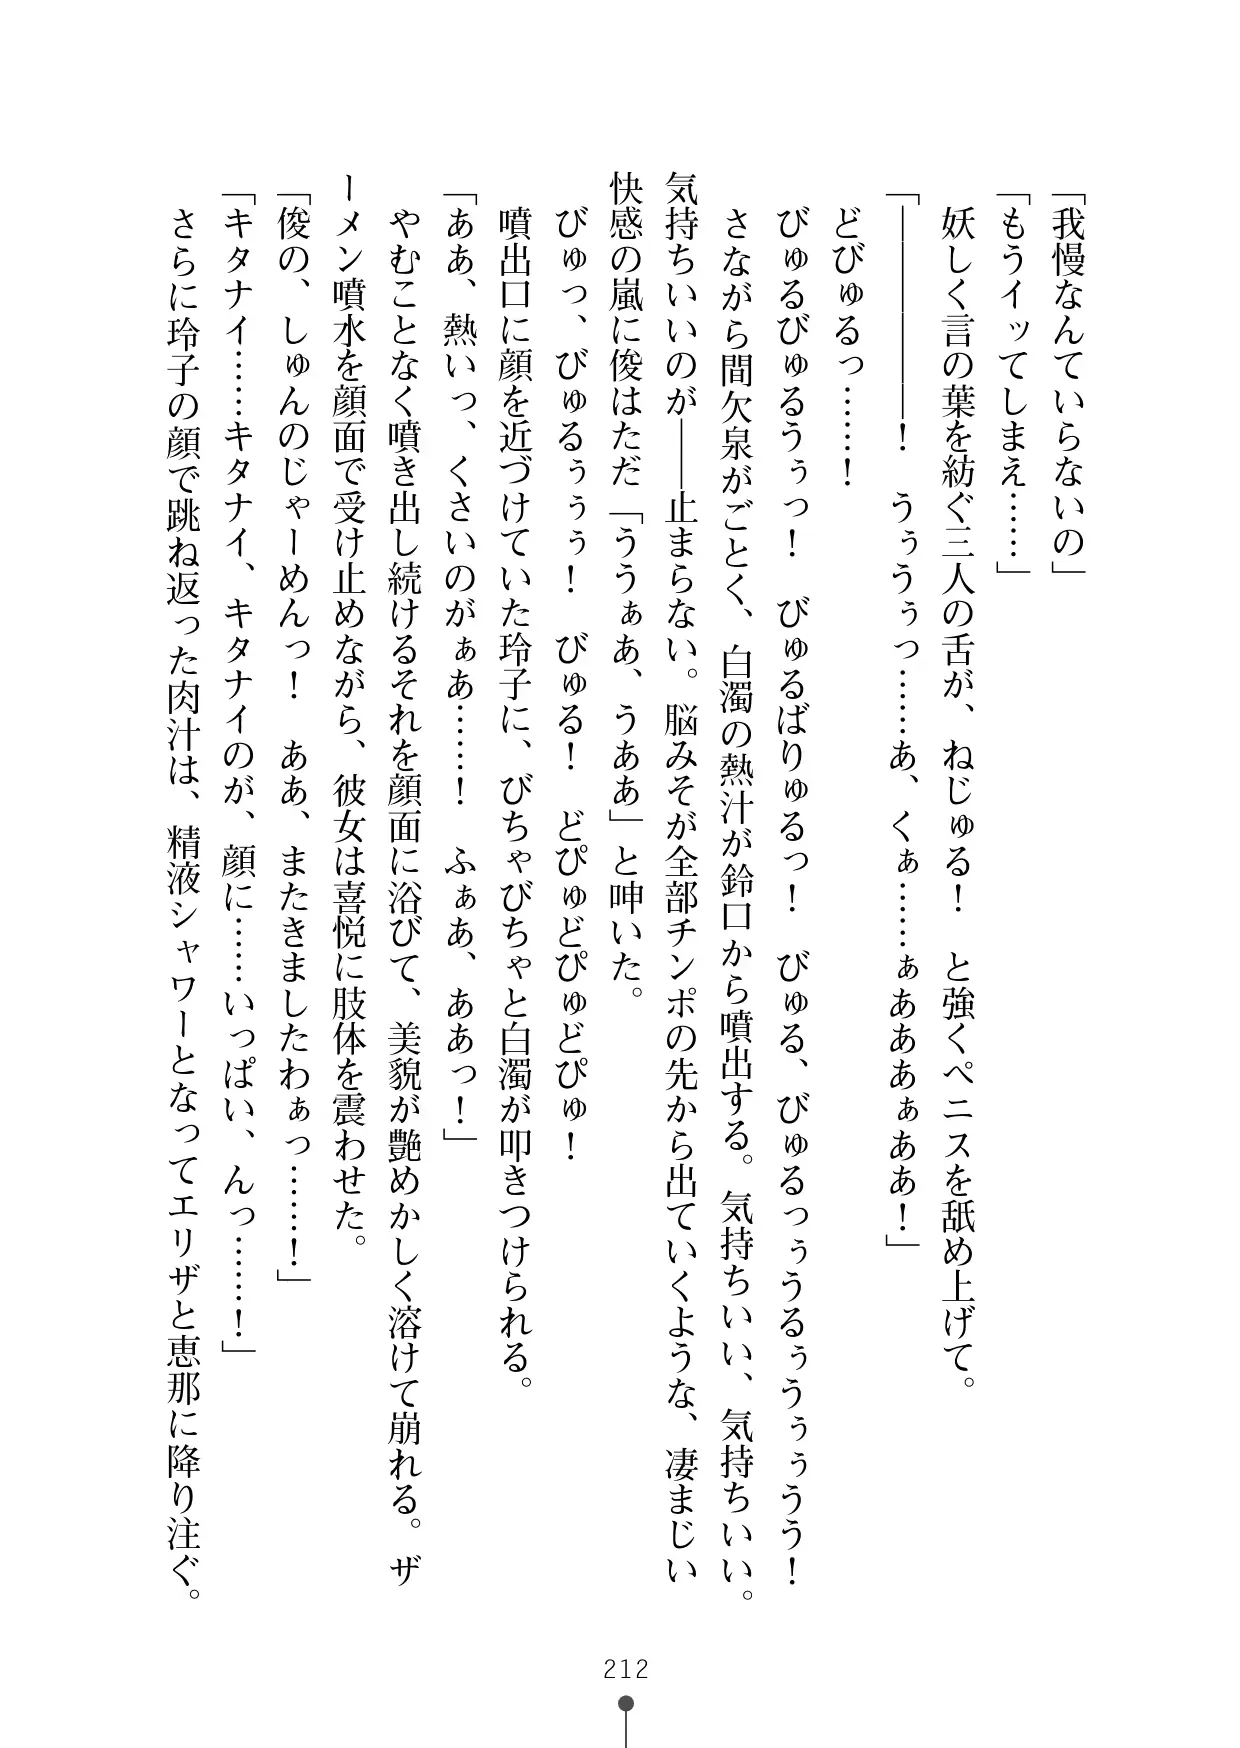 「我慢なんていらないの」
「もうイッてしまえ……」
　妖しく言の葉を紡ぐ三人の舌が、ねじゅる！　と強くペニスを舐め上げて。
「――――――！　うぅうぅっ……あ、くぁ……ぁあああぁああ！」
　どびゅるっ……！
　びゅるびゅるうぅっ！　びゅるばりゅるっ！　びゅる、びゅるっぅうるぅうぅぅうう！
　さながら間欠泉がごとく、白濁の熱汁が鈴口から噴出する。気持ちいい、気持ちいい。
気持ちいいのが――止まらない。脳みそが全部チンポの先から出ていくような、凄まじい
快感の嵐に俊はただ「ううぁあ、うああ」と呻いた。
　びゅっ、びゅるぅぅぅ！　びゅる！　どぴゅどぴゅどぴゅ！
　噴出口に顔を近づけていた玲子に、びちゃびちゃと白濁が叩きつけられる。
「ああ、熱いっ、くさいのがぁあ……！　ふぁあ、ああっ！」
　やむことなく噴き出し続けるそれを顔面に浴びて、美貌が艶めかしく溶けて崩れる。ザ
ーメン噴水を顔面で受け止めながら、彼女は喜悦に肢体を震わせた。
「俊の、しゅんのじゃーめんっ！　ああ、またきましたわぁっ……！」
「キタナイ……キタナイ、キタナイのが、顔に……いっぱい、んっ……！」
　さらに玲子の顔で跳ね返った肉汁は、精液シャワーとなってエリザと恵那に降り注ぐ。
212